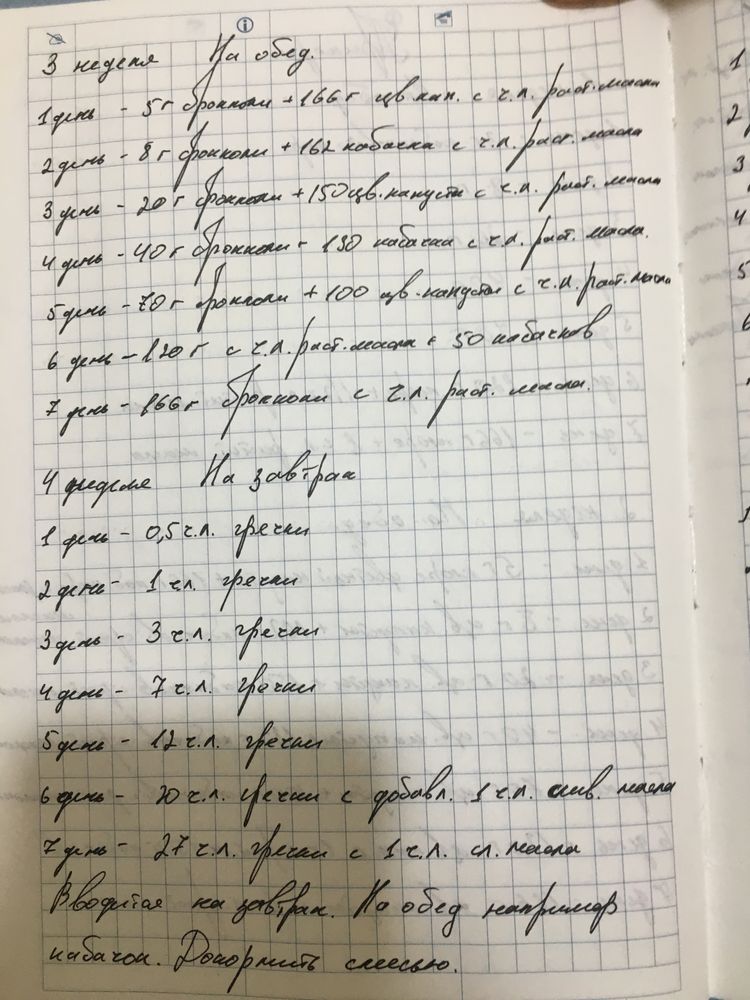 3 неделя На обед.
1 день - 5 г брокколи + 166 г цв. кап. с ч.л. раст. масла
2 день - 8 г брокколи + 162 кабачка с ч.л. раст. масла
3 день - 20 г брокколи + 150 цв. капусты с ч.л. раст. масла
4 день - 40 г брокколи + 130 кабачка с ч.л. раст. масла.
5 день - 70 г брокколи + 100 цв. капусты с ч.л. раст. масла
6 день - 120 г с ч.л. раст. масла + 50 кабачков
7 день - 166 г брокколи с ч.л. раст. масла.
4 неделя На завтрак
1 день - 0,5 ч.л. гречки
2 день - 1 чл. гречки
3 день - 3 ч.л. гречки
4 день - 7 ч.л. гречки
5 день - 12 ч.л. гречки
6 день - 20 ч.л. гречки с добавл. 1 ч.л. слив. масла
7 день - 27 ч.л. гречки с 1 ч.л. сл. масла
Вводится на завтрак. На обед например
кабачок. Докормить смесью.